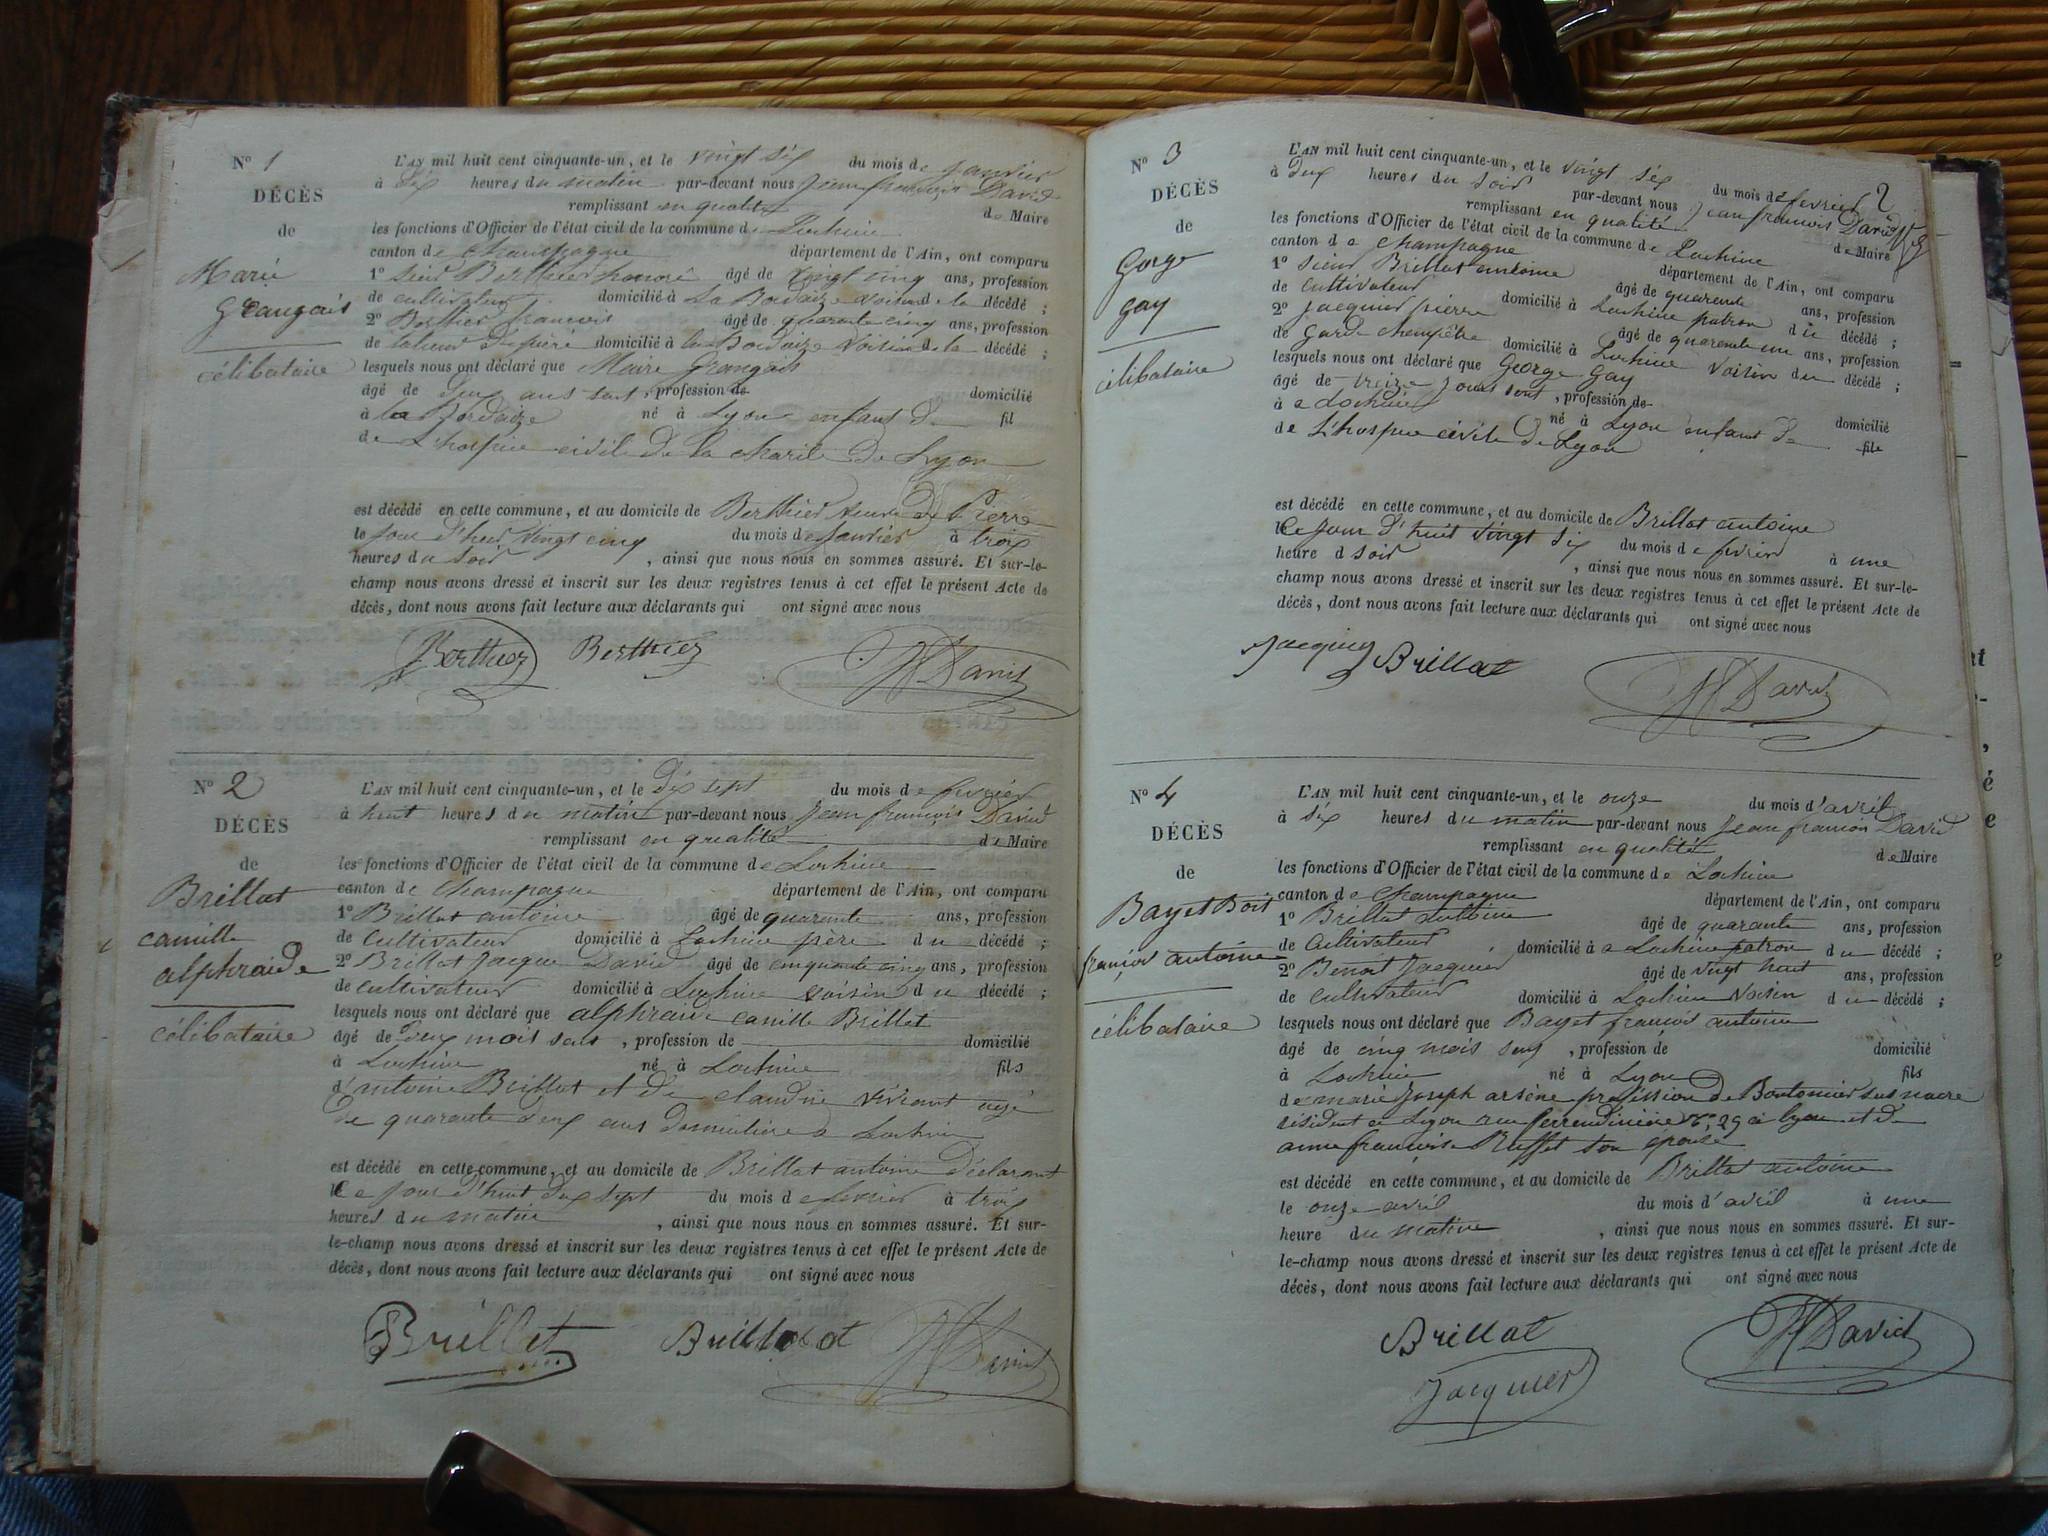 N° 1
DÉCÈS
de
Marie
Grangais
célibataire
L'AN mil huit cent cinquante-un, et le vingt six du mois de janvier
à six heures du matin par-devant nous jean françois David
remplissant en qualité de Maire
les fonctions d'Officier de l'état civil de la commune de Lochieu
canton de champagne département de l'Ain, ont comparu
1° sieur Berthier honoré âgé de vingt cinq ans, profession
de cultivateur domicilié à La Bordaize voisin d la décédé ;
2° Berthier francois âgé de quarante cinq ans, profession
de domicilié à la Bordaize voisin de la décédé ;
lesquels nous ont déclaré que Marie Grangais
âgé de Deux ans sent, profession de domicilié
à la Bordaize né à Lyon enfant De fil
de L'hospice civile De la charité De Lyon
est décédé en cette commune, et au domicile de Berthier de Pierre
le jour d'hier vingt cinq du mois de janvier à trois
heures du soir, ainsi que nous nous en sommes assuré. Et sur-le-
champ nous avons dressé et inscrit sur les deux registres tenus à cet effet le présent Acte de
décès, dont nous avons fait lecture aux déclarants qui ont signé avec nous
Berthier Berthier JF David
N° 2
DÉCÈS
de
Brillat
camille
alphraide
célibataire
L'AN mil huit cent cinquante-un, et le dix sept du mois de fevrier
à huit heures du matin par-devant nous Jean françois David
remplissant en qualité de Maire
les fonctions d'Officier de l'état civil de la commune de Lochieu
canton de champagne département de l'Ain, ont comparu
1° Brillat antoine âgé de quarante ans, profession
de cultivateur domicilié à Lochieu père du décédé ;
2° Brillat Jacque David âgé de cinquante cinq ans, profession
de cultivateur domicilié à Lochieu voisin du décédé ;
lesquels nous ont déclaré que alphraide camille Brillet
âgé de Deux mois sent, profession de domicilié
à Lochieu né à Lochieu fils
d'antoine Brillat et De claudine viviant agé
De quarante deux ans Domicilière a Lochieu
est décédé en cette commune, et au domicile de Brillat antoine Déclarant
le Ce jour d'huit dix sept du mois de fevrier à trois
heures du matin, ainsi que nous nous en sommes assuré. Et sur-
le-champ nous avons dressé et inscrit sur les deux registres tenus à cet effet le présent Acte de
décès, dont nous avons fait lecture aux déclarants qui ont signé avec nous
Brillet Brillat JF David
2
N° 3
DÉCÈS
de
Gorge
gay
célibataire
L'AN mil huit cent cinquante-un, et le vingt six du mois de fevrier
à Deux heures du soir par-devant nous jean francois David
remplissant en qualité de Maire
les fonctions d'Officier de l'état civil de la commune de Lochieu
canton de champagne département de l'Ain, ont comparu
1° sieur Brillat antoine âgé de quarente ans, profession
de cultivateur domicilié à Lochieu patron du décédé ;
2° jacquier pierre âgé de quarente un ans, profession
de garde champêtre domicilié à Lochieu voisin du décédé ;
lesquels nous ont déclaré que George Gay
âgé de treize jours sent, profession de domicilié
à a Lochieu né à Lyon enfant De fils
de L'hospice civile De Lyon
est décédé en cette commune, et au domicile de Brillat antoine
le Ce jour d'huit vingt six du mois de fevrier à une
heure d soir, ainsi que nous nous en sommes assuré. Et sur-le-
champ nous avons dressé et inscrit sur les deux registres tenus à cet effet le présent Acte de
décès, dont nous avons fait lecture aux déclarants qui ont signé avec nous
Jacquier Brillat JF David
N° 4
DÉCÈS
de
Bayet Boit
francois antoine
célibataire
L'AN mil huit cent cinquante-un, et le onze du mois d'avril
à six heures du matin par-devant nous Jean francois David
remplissant en qualité de Maire
les fonctions d'Officier de l'état civil de la commune de Lochieu
canton de champagne département de l'Ain, ont comparu
1° Brillat antoine âgé de quarante ans, profession
de cultivateur domicilié à a Lochieu patron du décédé ;
2° Benoit Jacquier âgé de vingt huit ans, profession
de cultivateur domicilié à Lochieu voisin du décédé ;
lesquels nous ont déclaré que Bayet francois antoine
âgé de cinq mois sent, profession de domicilié
à Lochieu né à Lyon fils
de marie Joseph arsène profession De Boutonnier sus nacre
résident a Lyon rue ferrendinière N° 29 a lyon et de
anne francoise Buffet son épouse
est décédé en cette commune, et au domicile de Brillat antoine
le onze avril du mois d'avril à une
heure du matin, ainsi que nous nous en sommes assuré. Et sur-
le-champ nous avons dressé et inscrit sur les deux registres tenus à cet effet le présent Acte de
décès, dont nous avons fait lecture aux déclarants qui ont signé avec nous
Brillat JF David
Jacquier